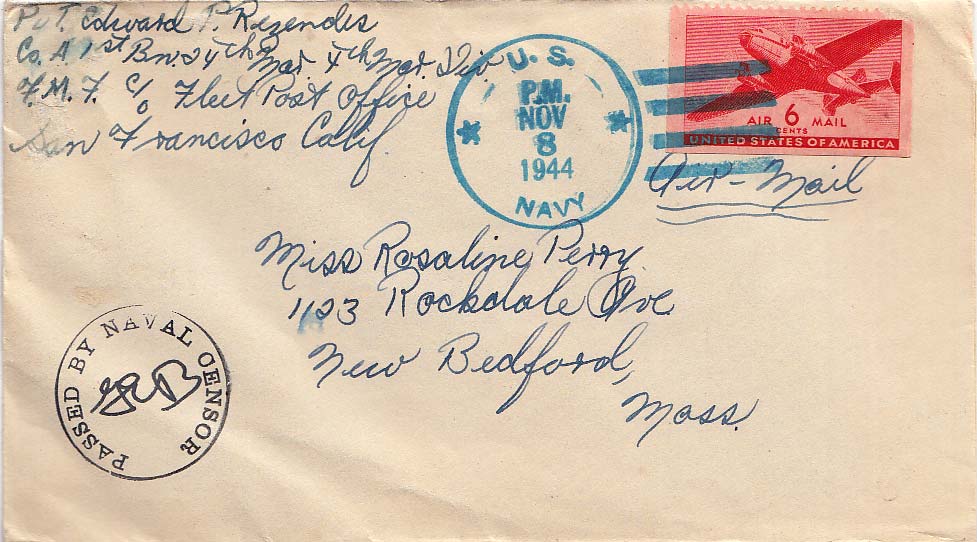 Pvt. Edward P. Rezendes
Co. A 1st Bn. 24th Mar. 4th Mar. Div
F.M.F. c/o Fleet Post Office
San Francisco Calif.
U.S.
P.M.
NOV
8
1944
NAVY
AIR 6 MAIL
CENTS
UNITED STATES OF AMERICA
Air-Mail
Miss Rosaline Perry
1123 Rockdale Ave
New Bedford,
Mass.
PASSED BY NAVAL CENSOR